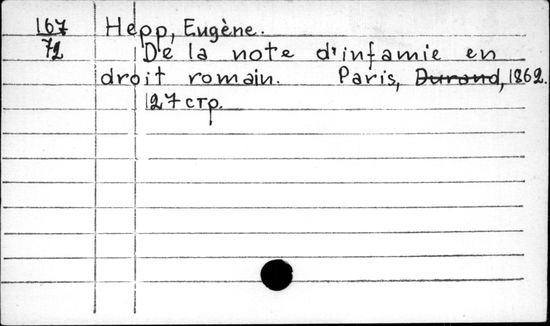 167 Hepp, Eugène.
72 De la note d'infamie en
droit romain. Paris, Durand, 1862.
127 стр.